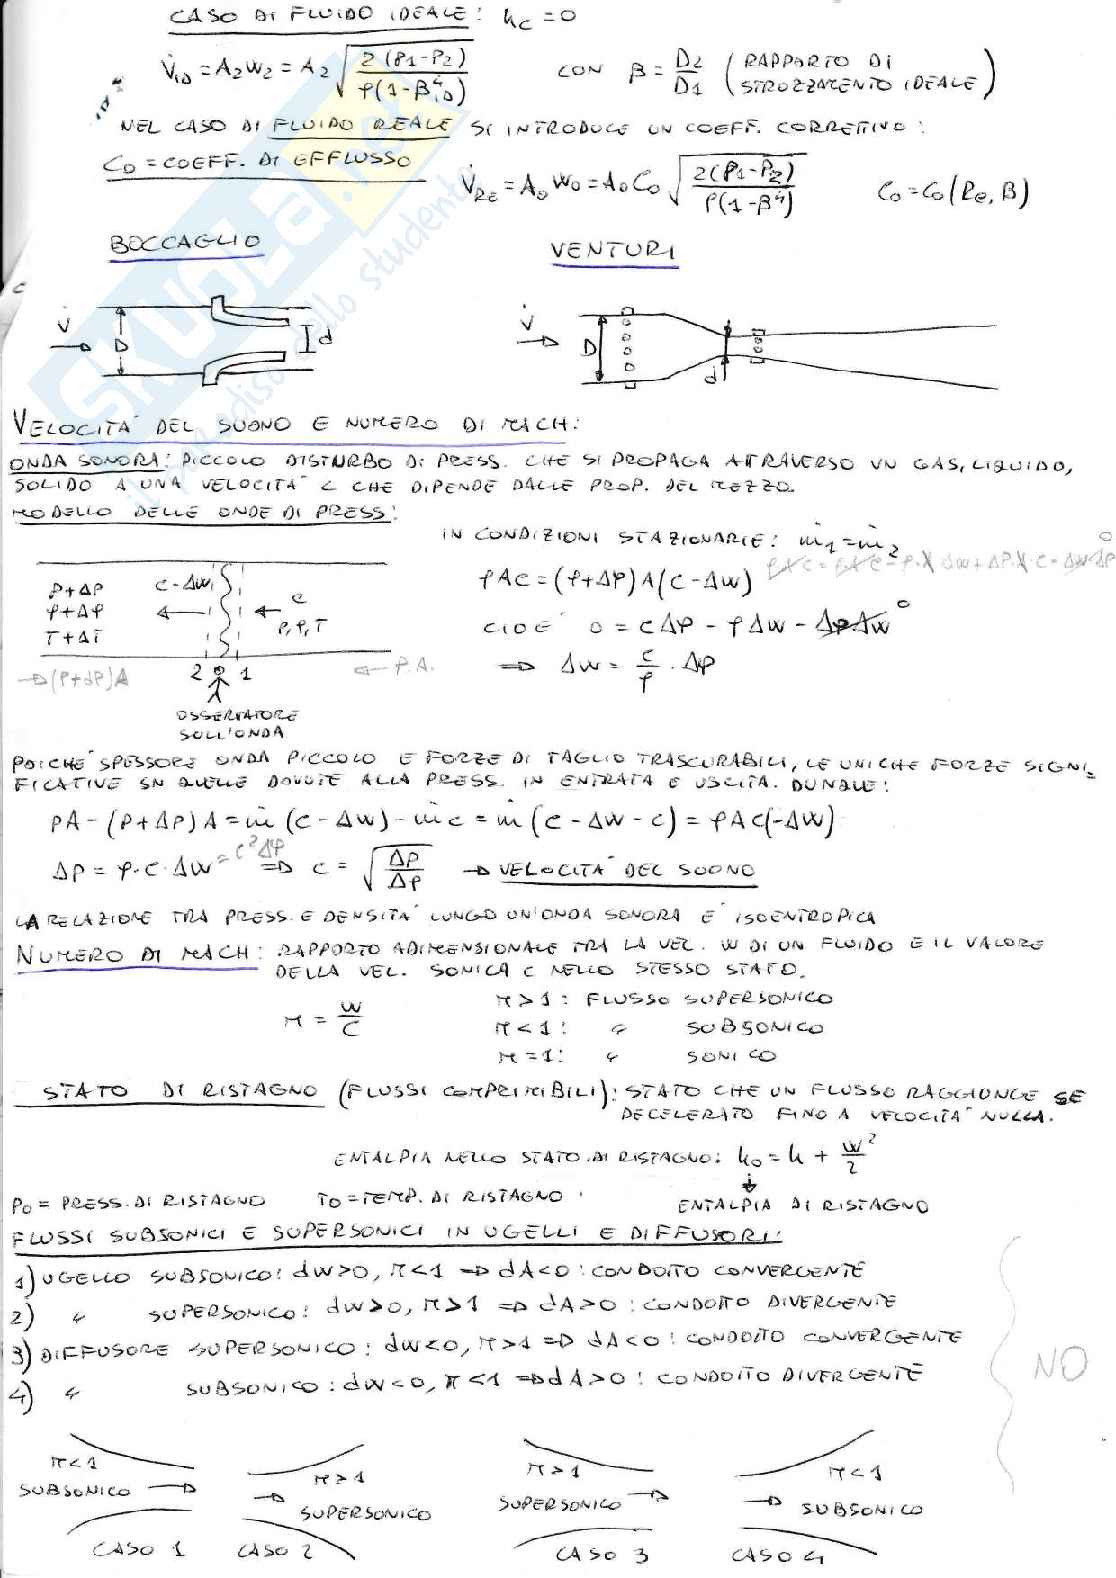 CASO DI FLUIDO IDEALE: hc = 0
V̇ID = A2 w2 = A2 √(2(P1-P2) / ρ(1-β⁴ID)) CON β = D2/D1 (RAPPORTO DI STROZZAMENTO IDEALE)
NEL CASO DI FLUIDO REALE SI INTRODUCE UN COEFF. CORRETTIVO:
C0 = COEFF. DI EFFLUSSO
V̇RE = A0 w0 = A0 C0 √(2(P1-P2) / ρ(1-β⁴)) C0 = C0(Re, β)
BOCCAGLIO VENTURI
V̇ D d
V̇ D d
VELOCITA' DEL SUONO E NUMERO DI MACH:
ONDA SONORA: PICCOLO DISTURBO DI PRESS. CHE SI PROPAGA ATTRAVERSO UN GAS, LIQUIDO,
SOLIDO A UNA VELOCITA' C CHE DIPENDE DALLE PROP. DEL MEZZO.
MODELLO DELLE ONDE DI PRESS:
IN CONDIZIONI STAZIONARIE: ṁ1 = ṁ2
ρAC = (ρ+Δρ)A(C-Δw)
CIOE' 0 = CΔρ - ρΔw - ΔρΔw 0
⇒ Δw = C/ρ · Δρ
P+ΔP C-Δw
ρ+Δρ C
T+ΔT P,ρ,T
→(P+dP)A 2 1 ← P.A.
OSSERVATORE
SULL'ONDA
POICHE' SPESSORE ONDA PICCOLO E FORZE DI TAGLIO TRASCURABILI, LE UNICHE FORZE SIGNI-
FICATIVE SN QUELLE DOVUTE ALLA PRESS. IN ENTRATA E USCITA. DUNQUE:
PA - (P+ΔP)A = ṁ(C-Δw) - ṁC = ṁ(C-Δw-C) = ρAC(-Δw)
ΔP = ρ·C·Δw = C²Δρ ⇒ C = √(ΔP/Δρ) → VELOCITA' DEL SUONO
LA RELAZIONE TRA PRESS. E DENSITA' LUNGO UN'ONDA SONORA E' ISOENTROPICA
NUMERO DI MACH: RAPPORTO ADIMENSIONALE TRA LA VEL. W DI UN FLUIDO E IL VALORE
DELLA VEL. SONICA C NELLO STESSO STATO.
M = W/C
M > 1: FLUSSO SUPERSONICO
M < 1: " SUBSONICO
M = 1: " SONICO
STATO DI RISTAGNO (FLUSSI COMPRIMIBILI): STATO CHE UN FLUSSO RAGGIUNGE SE
DECELERATO FINO A VELOCITA' NULLA.
ENTALPIA NELLO STATO DI RISTAGNO: h0 = h + w²/2
P0 = PRESS. DI RISTAGNO T0 = TEMP. DI RISTAGNO ENTALPIA DI RISTAGNO
FLUSSI SUBSONICI E SUPERSONICI IN UGELLI E DIFFUSORI:
1) UGELLO SUBSONICO: dw>0, M<1 ⇒ dA<0: CONDOTTO CONVERGENTE
2) " SUPERSONICO: dw>0, M>1 ⇒ dA>0: CONDOTTO DIVERGENTE
3) DIFFUSORE SUPERSONICO: dw<0, M>1 ⇒ dA<0: CONDOTTO CONVERGENTE
4) " SUBSONICO: dw<0, M<1 ⇒ dA>0: CONDOTTO DIVERGENTE
NO
M<1 M>1 M>1 M<1
SUBSONICO → → SUPERSONICO SUPERSONICO → → SUBSONICO
CASO 1 CASO 2 CASO 3 CASO 4